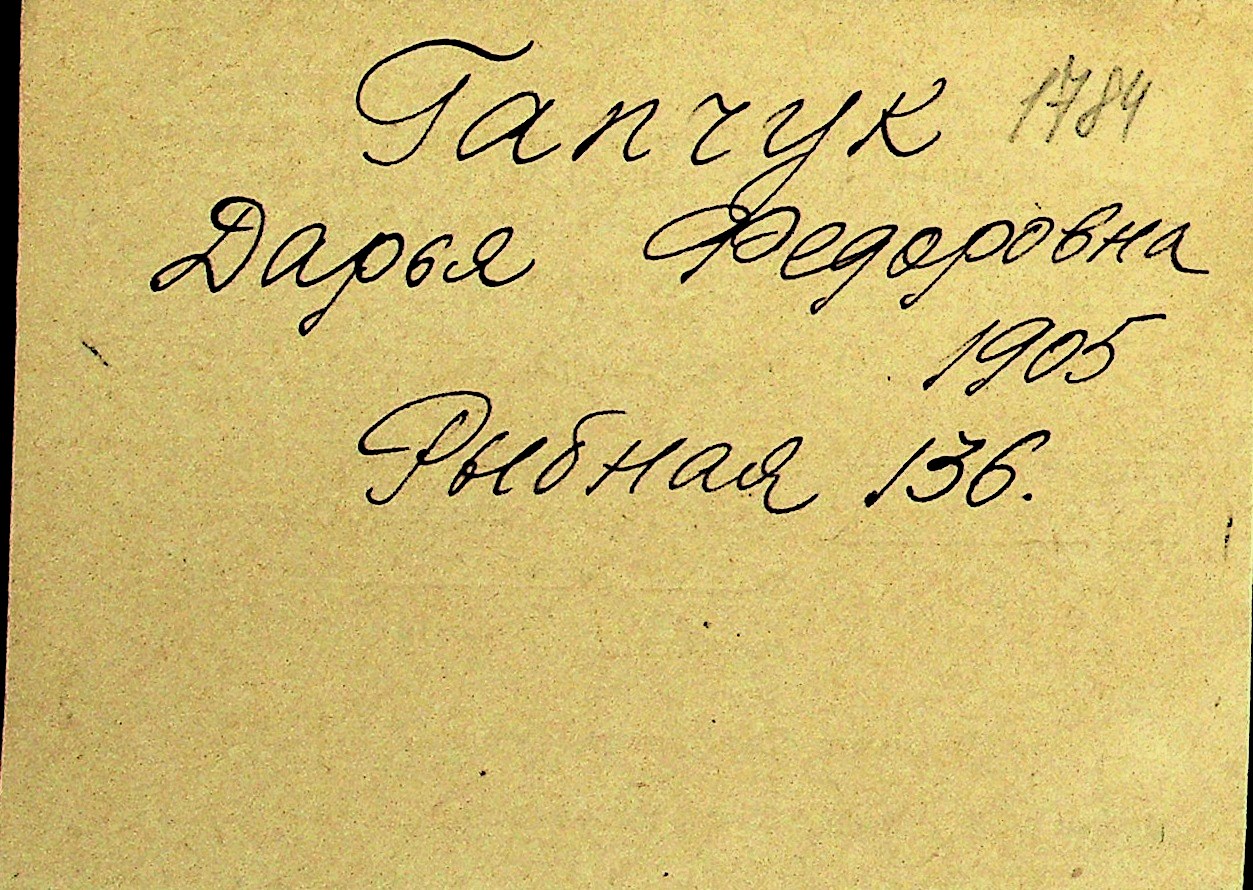 Гапчук 1784
Дарья Федоровна
1905
Рыбная 136.